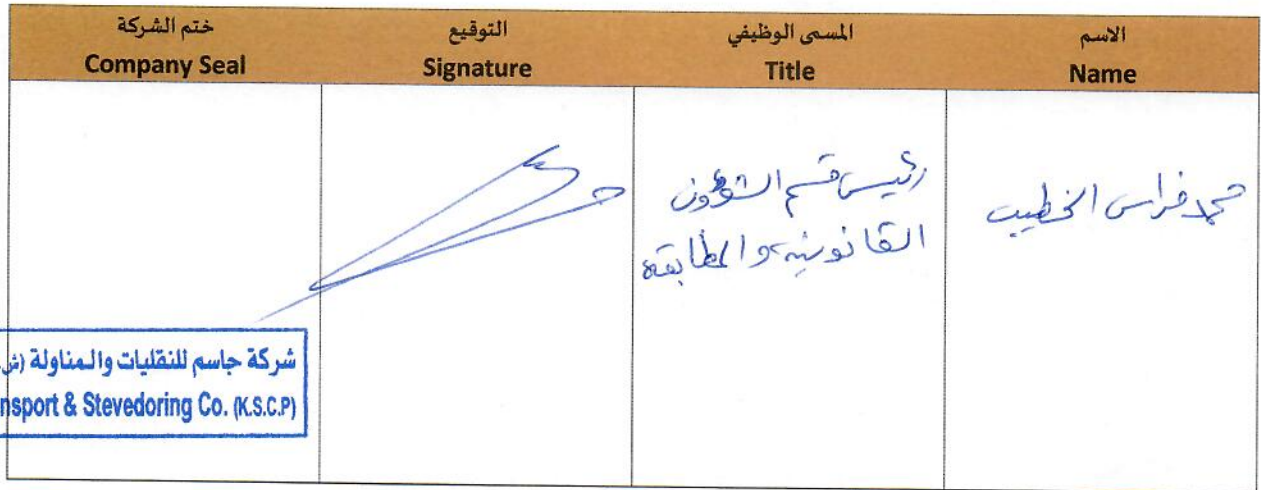 الاسم
Name
المسمى الوظيفي
Title
التوقيع
Signature
ختم الشركة
Company Seal
محمد فراس الخطيب
رئيس قسم الشؤون
القانونية والمطابقة
شركة جاسم للنقليات والمناولة (ش.
nsport & Stevedoring Co. (K.S.C.P)